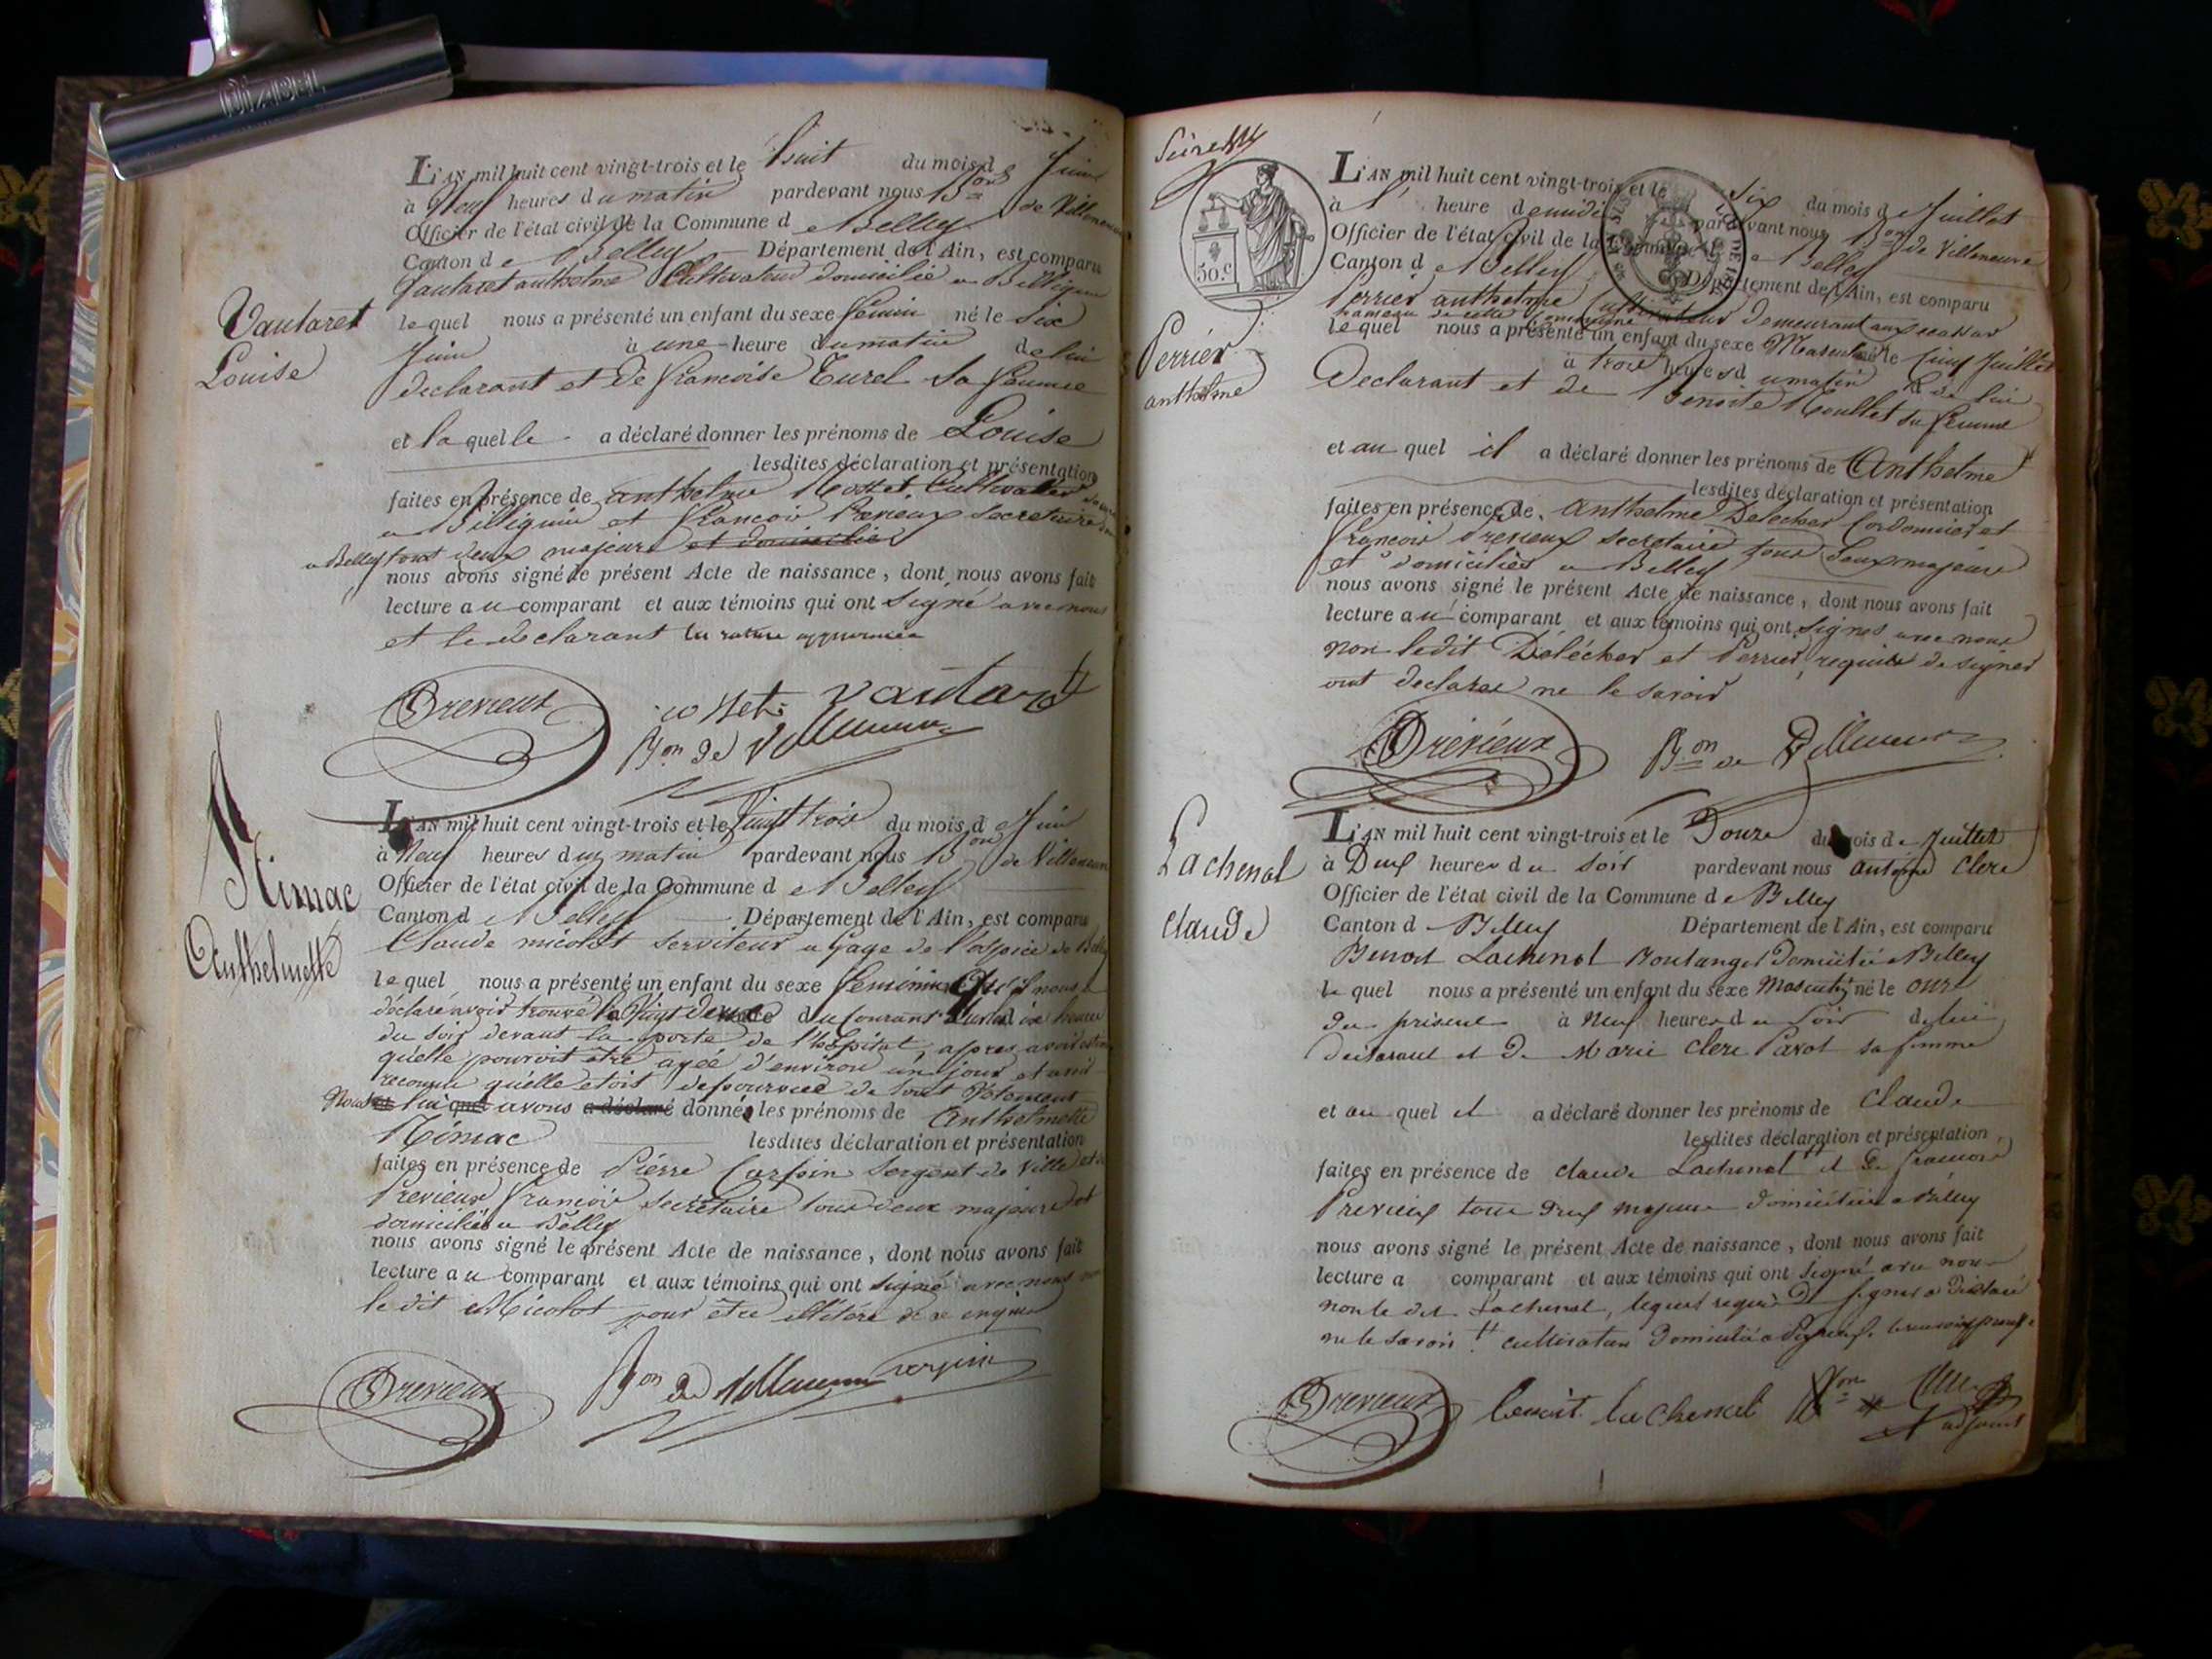 DIZABEL
L'AN mil huit cent vingt-trois et le huit du mois d Juin
à Neuf heures du matin pardevant nous Bon de Villeneuve
Officier de l'état civil de la Commune d e Belley
Canton d e Belley Département de l'Ain, est comparu
Vautaret anthelme Cultivateur domicilié a Billignin
Vautaret
Louise
le quel nous a présenté un enfant du sexe féminin né le six
Juin à une heure du matin de lui
declarant et de francoise Eurel Sa femme
et la quelle a déclaré donner les prénoms de Louise
lesdites déclaration et présentation
faites en présence de anthelme Mosset, Cultivateur
a Billignin et francois Previeux secretaire
a Belley tout deux majeurs et domicilies
nous avons signé le présent Acte de naissance, dont nous avons fait
lecture a u comparant et aux témoins qui ont signé avec nous
et le declarant la rature approuvée
Previeux Vautaret
Bon de Villeneuve
Nimac
Anthelmette
L'AN mil huit cent vingt-trois et le Vingt trois du mois d e Juin
à Neuf heures du matin pardevant nous Bon de Villeneuve
Officier de l'état civil de la Commune d e Belley
Canton d e Belley Département de l'Ain, est comparu
Claude micolot serviteur a gage de l'ospice de Belley
le quel nous a présenté un enfant du sexe feminin Qu'il nous a
déclaré avoir trouvé le Vingt deux du courant heures
du soir devant la porte de l'hopital, apres avoir
quelle pouvoit être agée d'environ un jour et avoir
reconnu qu'elle etoit depourvue de tout Vetement
Nous lui avons a déclaré donné les prénoms de Anthelmette
Nimac lesdites déclaration et présentation
faites en présence de Piérre Carpin Sergent de Ville et de
Previeux francois secrétaire tous deux majeurs et
domiciliés a Belley
nous avons signé le présent Acte de naissance, dont nous avons fait
lecture a u comparant et aux témoins qui ont signé avec nous non
le dit Micolot pour être illétéré de ce enquis
Previeux Bon de Villeneuve
30.c
L'AN mil huit cent vingt-trois et le Six du mois d e Juillet
à 1 heure de midi pardevant nous Bon de Villeneuve
Officier de l'état civil de la Commune d e Belley
Canton d e Belley Département de l'Ain, est comparu
Perrier anthelme Cultivateur demeurant aux
hameau de cette Commune
Perrier
anthelme
le quel nous a présenté un enfant du sexe Masculin né le cinq Juillet
à trois heures du matin de lui
Declarant et de Benoite Moullet sa femme
et au quel il a déclaré donner les prénoms de Anthelme
lesdites déclaration et présentation
faites en présence de Anthelme Delecher Cordonnier et
francois Previeux secretaire tous deux majeurs
et domiciliés a Belley
nous avons signé le présent Acte de naissance, dont nous avons fait
lecture au comparant et aux témoins qui ont signés avec nous
non ledit Délécher et Perrier requis de signer
ont declarer ne le savoir
Previeux Bon de Villeneuve
Lachenal
claude
L'AN mil huit cent vingt-trois et le Douze du mois d e Juillet
à Deux heures du soir pardevant nous antoine Clerc
Officier de l'état civil de la Commune d e Belley
Canton d Belley Département de l'Ain, est comparu
Benoit Lachenal Boulanger domicilié a Belley
le quel nous a présenté un enfant du sexe masculin né le onze
du présent à Neuf heures du soir de lui
declarant et de Marie Clerc Parot sa femme
et au quel il a déclaré donner les prénoms de claude
lesdites déclaration et présentation
faites en présence de claude Lachenal tt et de francois
Previeux tous deux majeurs domiciliés a Belley
nous avons signé le présent Acte de naissance, dont nous avons fait
lecture a comparant et aux témoins qui ont signé avec nous
non le dit Lachenal, lequel requis de signer a déclaré
ne le savoir tt cultivateur domicilié a
Previeux benoit lachenal Bon Clerc
adjoint